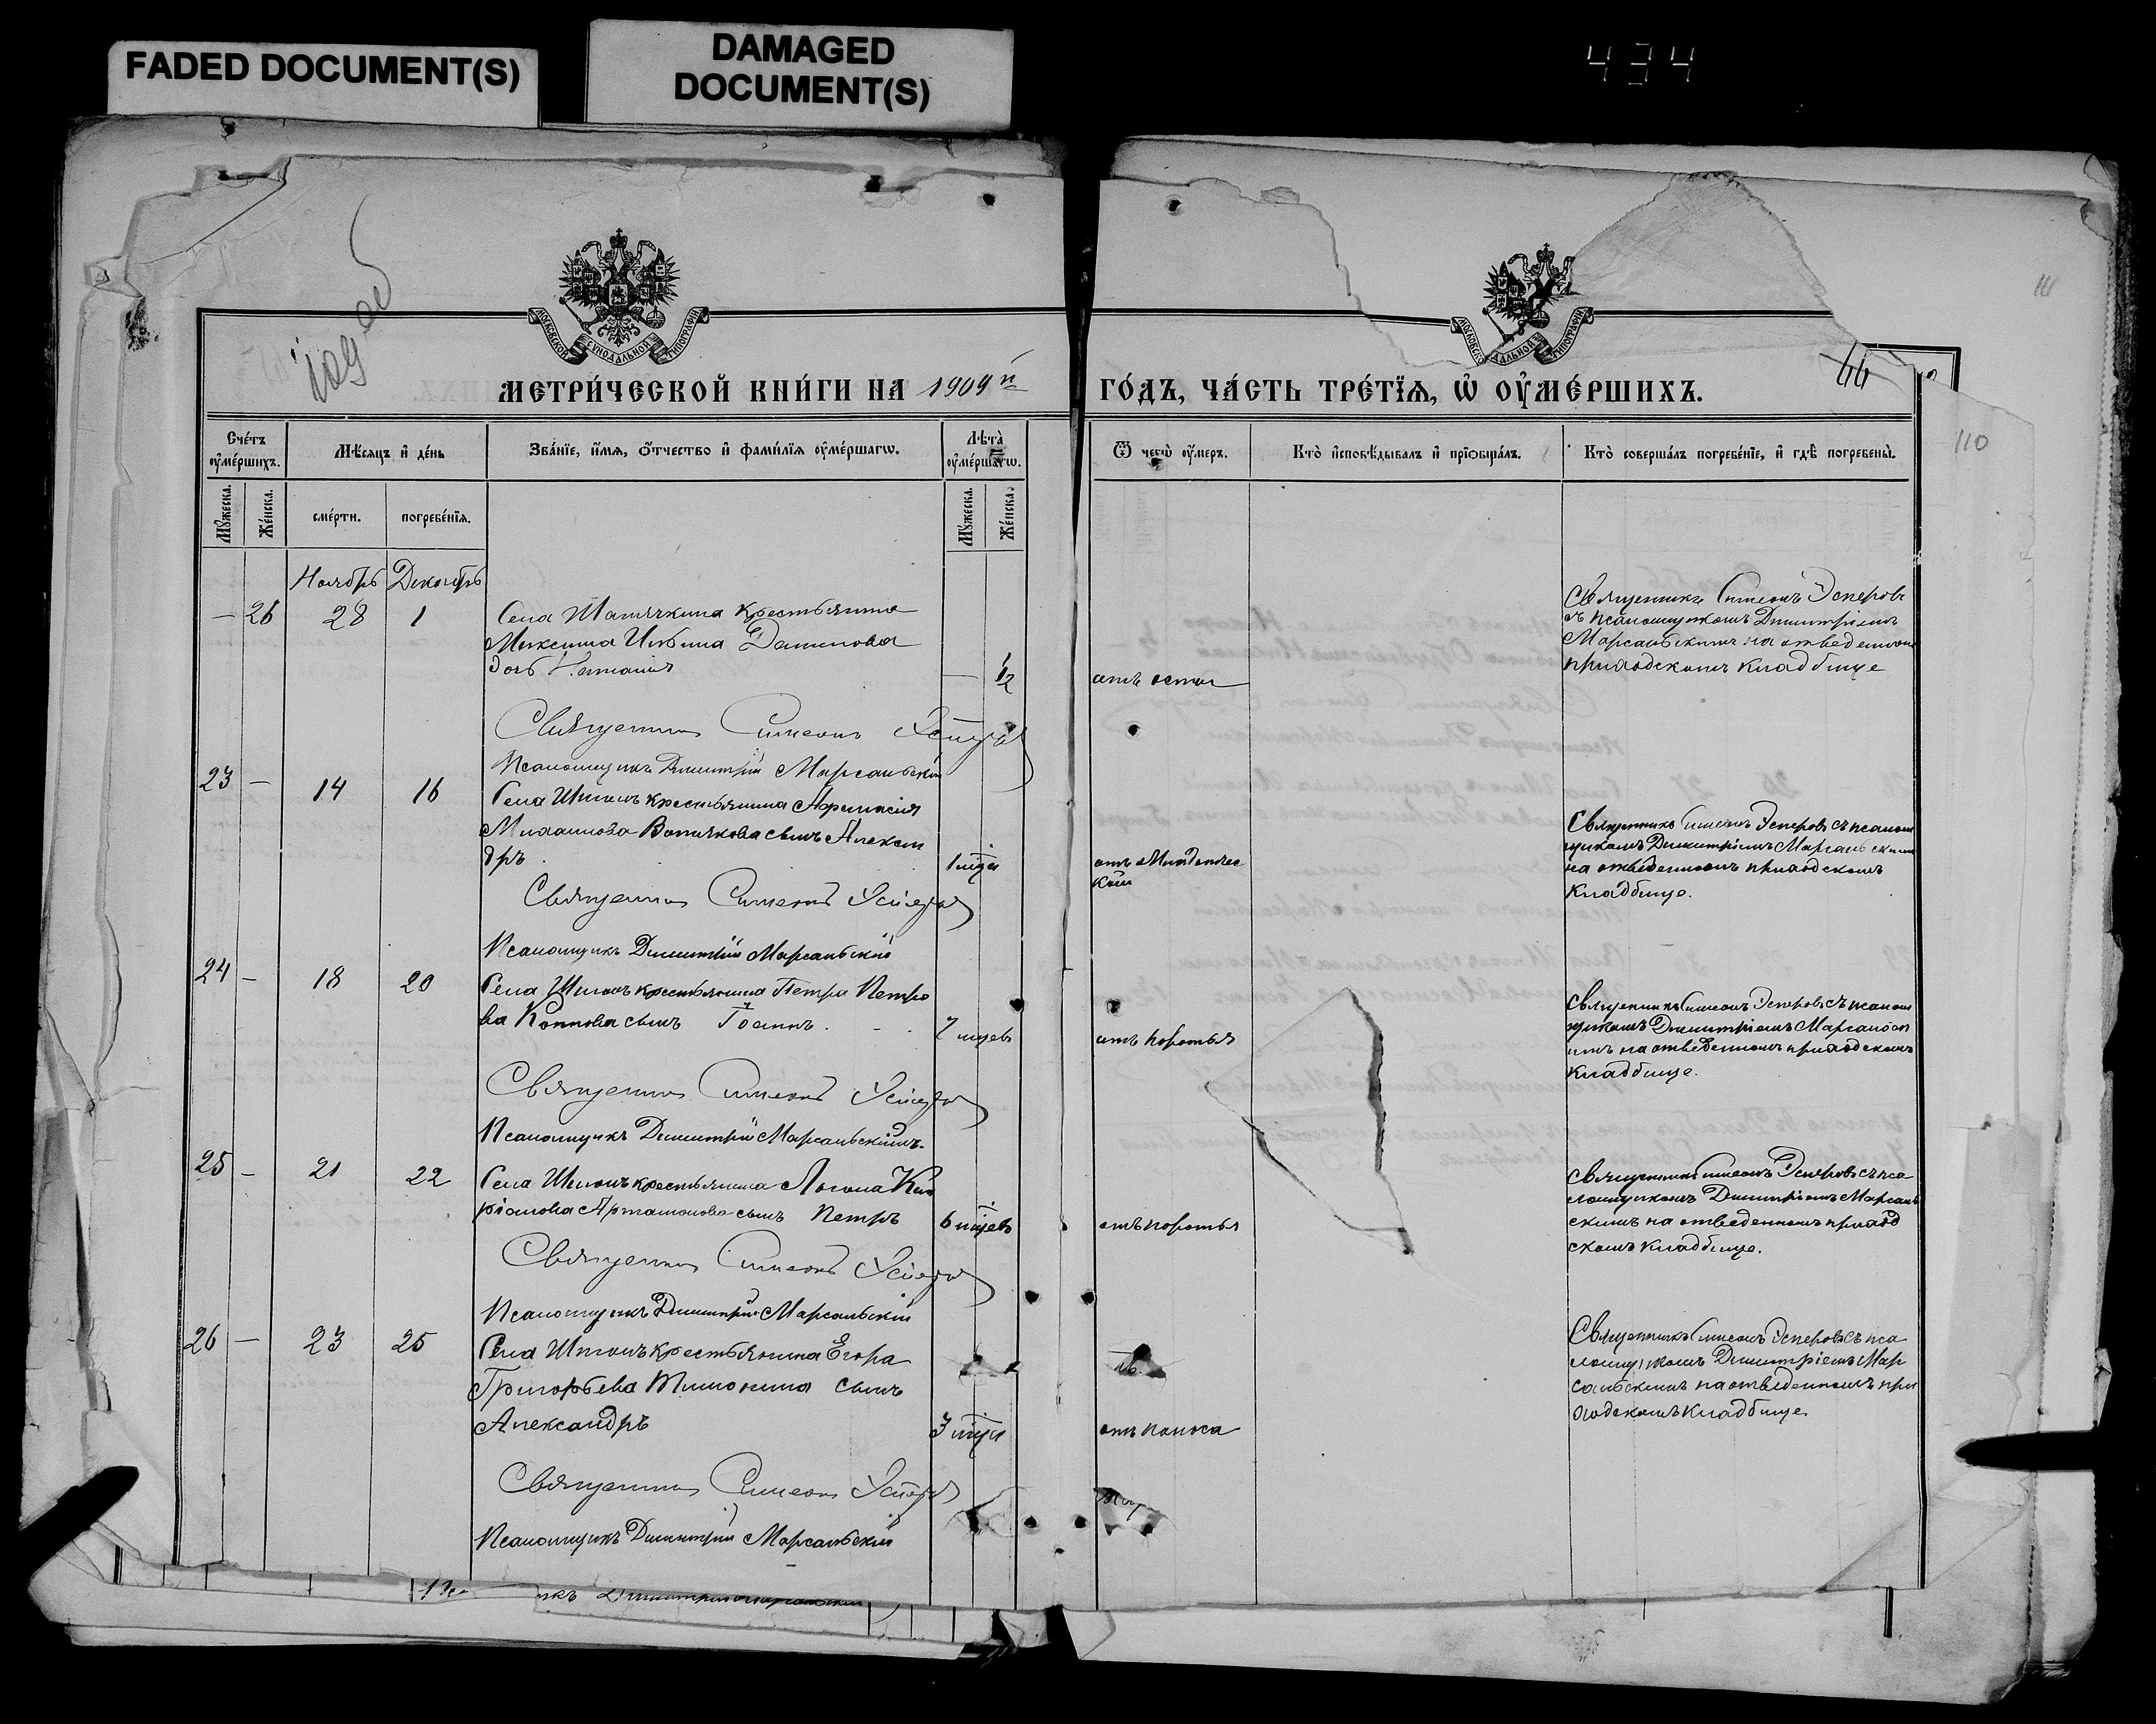 FADED DOCUMENT(S)
DAMAGED
DOCUMENT(S)
434
111
МОСКОВСКОЙ СУНОДАЛЬНОЙ ТИПОГРАФІИ
44
МЕТРИ́ЧЕСКОЙ КНИ́ГИ НА 1909 й ГО́ДЪ, ЧА́СТЬ ТРЕ́ТЇѦ, Ѡ҆ ОУ҆МЕ́РШИХЪ.
110
Сче́тъ оу҆ме́ршихъ.
Мѣ́сяцъ и҆ де́нь
Зва́нїе, и҆́мя, ѻ҆́тчество и҆ фами́лїя оу҆ме́ршагѡ.
Лѣ́та оу҆ме́ршагѡ.
Ѿ чегѡ̀ оу҆́меръ.
Кто̀ и҆сповѣ́дывалъ и҆ прїѡбща́лъ.
Кто̀ соверша́лъ погребе́нїе, и҆ гдѣ̀ погребены̀.
Мꙋ́жеска.
Же́нска.
сме́рти.
погребе́нїя.
Мꙋ́жеска.
Же́нска.
Ноябрь Декабрь
— 26 28 1
Села крестьянина
Максима Ильина Данилова
дочь
— 1/2
Священникъ Симеонъ Эсперовъ
съ псаломщикомъ Димитріемъ
Марсальскимъ на отведенномъ
приходскомъ кладбище
Священникъ Симеонъ Эсперовъ
Псаломщикъ Димитрій Марсальскій
23 — 14 16
Села крестьянина
Михайлова сынъ Алексан
дръ
1 мца
отъ Младенчес
кой
Священникъ Симеонъ Эсперовъ съ псалом
щикомъ Димитріемъ Марсальскимъ
на отведенномъ приходскомъ
кладбище.
Священникъ Симеонъ Эсперовъ
Псаломщикъ Димитрій Марсальскій
24 — 18 20
Села крестьянина Петра Петро
ва сынъ Іоаннъ.
7 мцевъ
отъ коротья
Священникъ Симеонъ Эсперовъ съ псалом
щикомъ Димитріемъ Марсальск
имъ на отведенномъ приходскомъ
кладбище.
Священникъ Симеонъ Эсперовъ
Псаломщикъ Димитрій Марсальскій
25 — 21 22
Села крестьянина Ки
ріанова Артамонова сынъ Петръ
6 мцевъ
отъ коротья
Священникъ Симеонъ Эсперовъ съ пса
ломщикомъ Димитріемъ Марсаль
скимъ на отведенномъ приход
скомъ кладбище.
Священникъ Симеонъ Эсперовъ
Псаломщикъ Димитрій Марсальскій
26 — 23 25
Села крестьянина Егора
Григорьева Тимонина сынъ
Александръ
3 мца
отъ поноса
Священникъ Симеонъ Эсперовъ съ пса
ломщикомъ Димитріемъ Мар
сальскимъ на отведенномъ при
ходскомъ кладбище.
Священникъ Симеонъ Эсперовъ
Псаломщикъ Димитрій Марсальскій